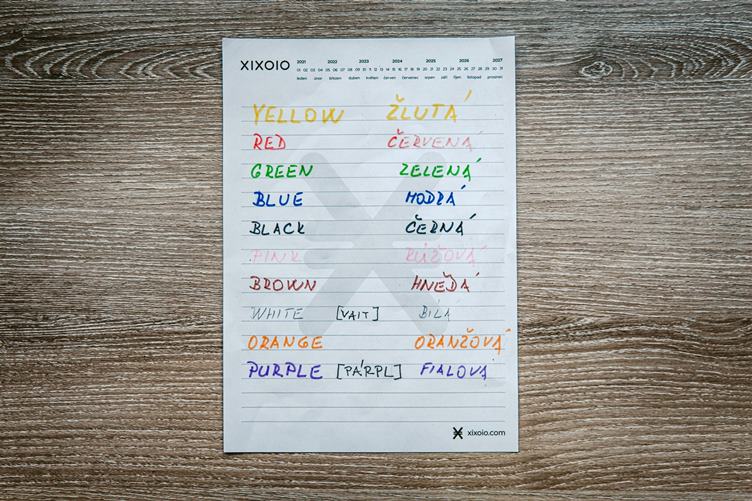 XIXOIO 2021 2022 2023 2024 2025 2026 2027
01 02 03 04 05 06 07 08 09 10 11 12 13 14 15 16 17 18 19 20 21 22 23 24 25 26 27 28 29 30 31
leden únor březen duben květen červen červenec srpen září říjen listopad prosinec
YELLOW ŽLUTÁ
RED ČERVENÁ
GREEN ZELENÁ
BLUE MODRÁ
BLACK ČERNÁ
PINK RŮŽOVÁ
BROWN HNĚDÁ
WHITE [VAIT] BÍLÁ
ORANGE ORANŽOVÁ
PURPLE [PÁRPL] FIALOVÁ
xixoio.com